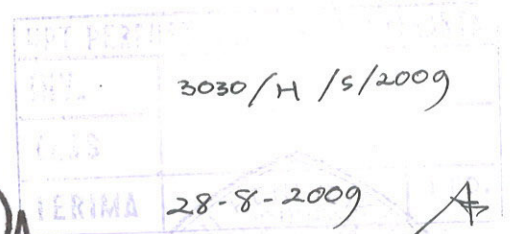 UPT PERPU
INV. 3030/H /S/2009
KLAS
TERIMA 28-8-2009